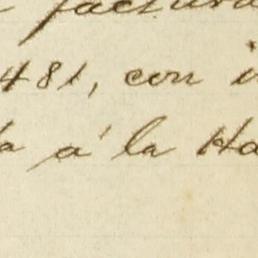 factura
481, con
á la Ha